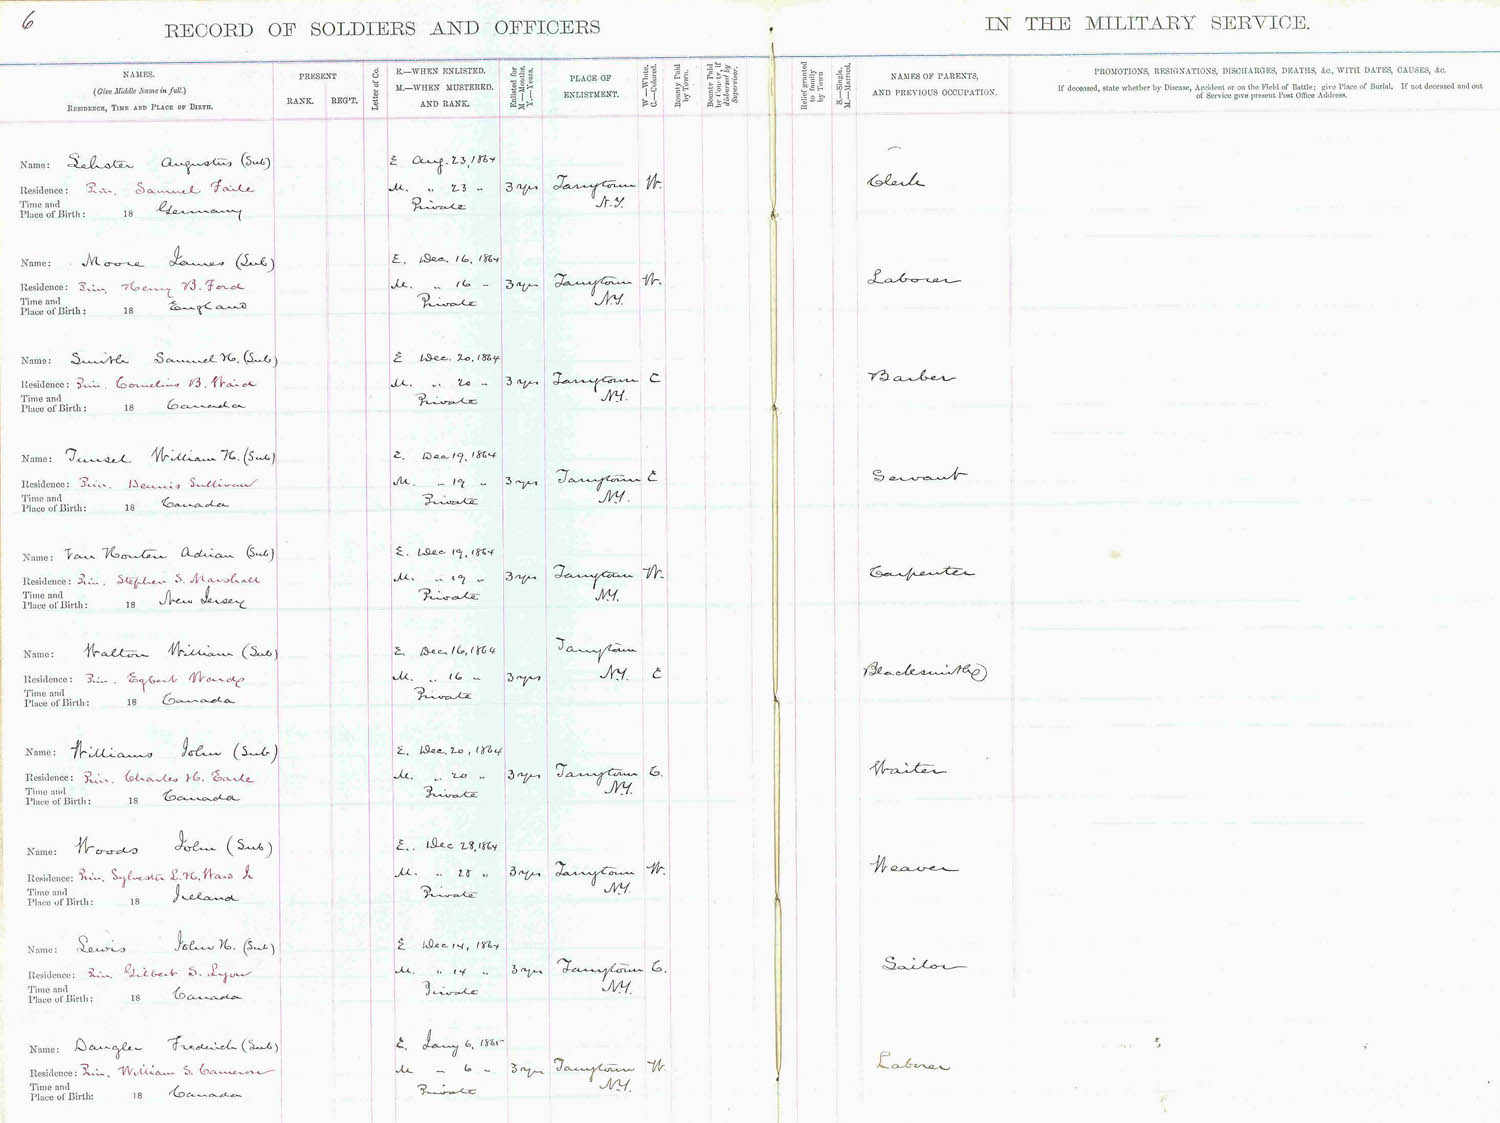 6
RECORD OF SOLDIERS AND OFFICERS
IN THE MILITARY SERVICE.
NAMES.
(Give Middle Name in full.)
RESIDENCE, TIME AND PLACE OF BIRTH.
PRESENT
RANK. REG'T.
Letter of Co.
E.—WHEN ENLISTED.
M.—WHEN MUSTERED.
AND RANK.
Enlisted for
M.—Months.
Y.—Years.
PLACE OF
ENLISTMENT.
W.—White.
C.—Colored.
Bounty Paid
by Town.
Bounty Paid
by County, if
disbursed by
Supervisor.
Relief granted
to family
by Town
S.—Single.
M.—Married.
NAMES OF PARENTS,
AND PREVIOUS OCCUPATION.
PROMOTIONS, RESIGNATIONS, DISCHARGES, DEATHS, &c., WITH DATES, CAUSES, &c.
If deceased, state whether by Disease, Accident or on the Field of Battle; give Place of Burial. If not deceased and out
of Service give present Post Office Address.
Name: Augustus (Sub) E Aug. 23, 1864
Residence: Prin. Samuel Faile M. " 23 " 3 yrs Tarrytown W. Clerk
Time and
Place of Birth: 18 Germany Private N.Y.
Name: Moore James (Sub) E. Dec. 16, 1864
Residence: Prin. Henry B. Ford M. " 16 " 3 yrs Tarrytown W. Laborer
Time and
Place of Birth: 18 England Private N.Y.
Name: Smith Samuel H. (Sub) E Dec. 20, 1864
Residence: Prin. Cornelius B. Ward M. " 20 " 3 yrs Tarrytown C Barber
Time and
Place of Birth: 18 Canada Private N.Y.
Name: Tunsel William H. (Sub) E. Dec 19, 1864
Residence: Prin. Dennis Sullivan M. " 19 " 3 yrs Tarrytown C Servant
Time and
Place of Birth: 18 Canada Private N.Y.
Name: Van Houten Adrian (Sub) E. Dec 19, 1864
Residence: Prin. Stephen S. Marshall M. " 19 " 3 yrs Tarrytown W. Carpenter
Time and
Place of Birth: 18 New Jersey Private N.Y.
Name: Walton William (Sub) E. Dec. 16, 1864 Tarrytown
Residence: Prin. Egbert M. " 16 " 3 yrs N.Y. C Blacksmith
Time and
Place of Birth: 18 Canada Private
Name: Williams John (Sub) E. Dec. 20, 1864
Residence: Prin. Charles H. Earle M. " 20 " 3 yrs Tarrytown C. Waiter
Time and
Place of Birth: 18 Canada Private N.Y.
Name: Woods John (Sub) E. Dec 28, 1864
Residence: Prin. Sylvester L. H. Ward Jr M. " 28 " 3 yrs Tarrytown W. Weaver
Time and
Place of Birth: 18 Ireland Private N.Y.
Name: Lewis John H. (Sub) E Dec 14, 1864
Residence: Prin. Gilbert S. Lyon M. " 14 " 3 yrs Tarrytown C. Sailor
Time and
Place of Birth: 18 Canada Private N.Y.
Name: Dangler Frederick (Sub) E. Jany 6, 1865
Residence: Prin. William S. Cameron M " 6 " 3 yrs Tarrytown W. Laborer
Time and
Place of Birth: 18 Canada Private N.Y.